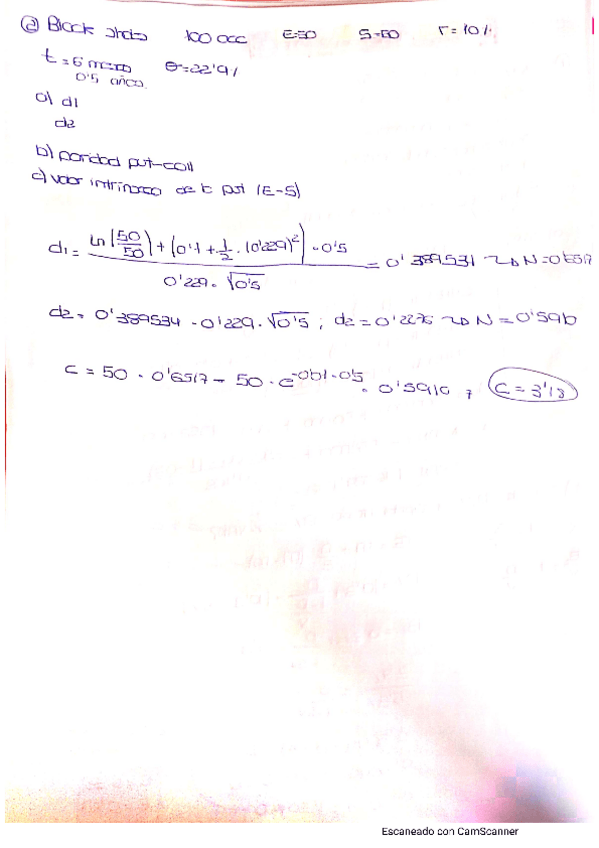 ② Black shdes 100 acc E=50 S=50 r=10%
t=6 meses σ=22'9%
0'5 años.
a) d1
d2
b) paridad put-call
c) valor intrínseco de la put (E-S)
d1 = ln(50/50) + (0'1 + 1/2 · (0'229)²) · 0'5 / 0'229 · √0'5 = 0'389531 → N=0'6517
d2 = 0'389534 - 0'229 · √0'5 ; d2 = 0'2276 → N = 0'590
C = 50 · 0'6517 - 50 · e^-0'1·0'5 · 0'5910 ; C = 3'13
Escaneado con CamScanner